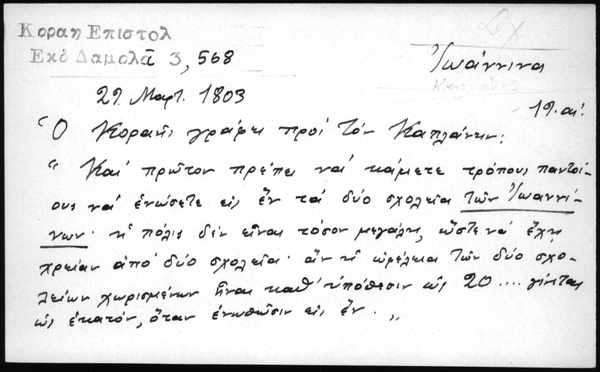 Κοραη Επιστολ
Εκδ Δαμαλᾶ 3, 568
Ἰωάννινα
29 Μαρτ. 1803
19. αἰ.
Ὁ Κοραῆς γράφει πρὸς τὸν Καπλάνην:
"Καὶ πρῶτον πρέπει νὰ κάμετε τρόπους παντοί-
ους νὰ ἑνώσετε εἰς ἓν τὰ δύο σχολεῖα τῶν Ἰωαννί-
νων· ἡ πόλις δὲν εἶναι τόσον μεγάλη, ὥστε νὰ ἔχῃ
χρείαν ἀπὸ δύο σχολεῖα· ἂν ἡ ὠφέλεια τῶν δύο σχο-
λείων χωρισμένων ἦναι καθ' ὑπόθεσιν ὡς 20 .... γίνεται
ὡς ἑκατόν, ὅταν ἑνωθῶσιν εἰς ἓν. "